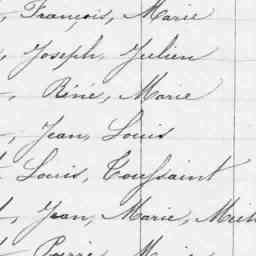 , François, Marie
, Joseph, Julien
, Réné, Marie
, Jean, Louis
Louis, Toussaint
, Jean, Marie, Mich
Pierre, Marie